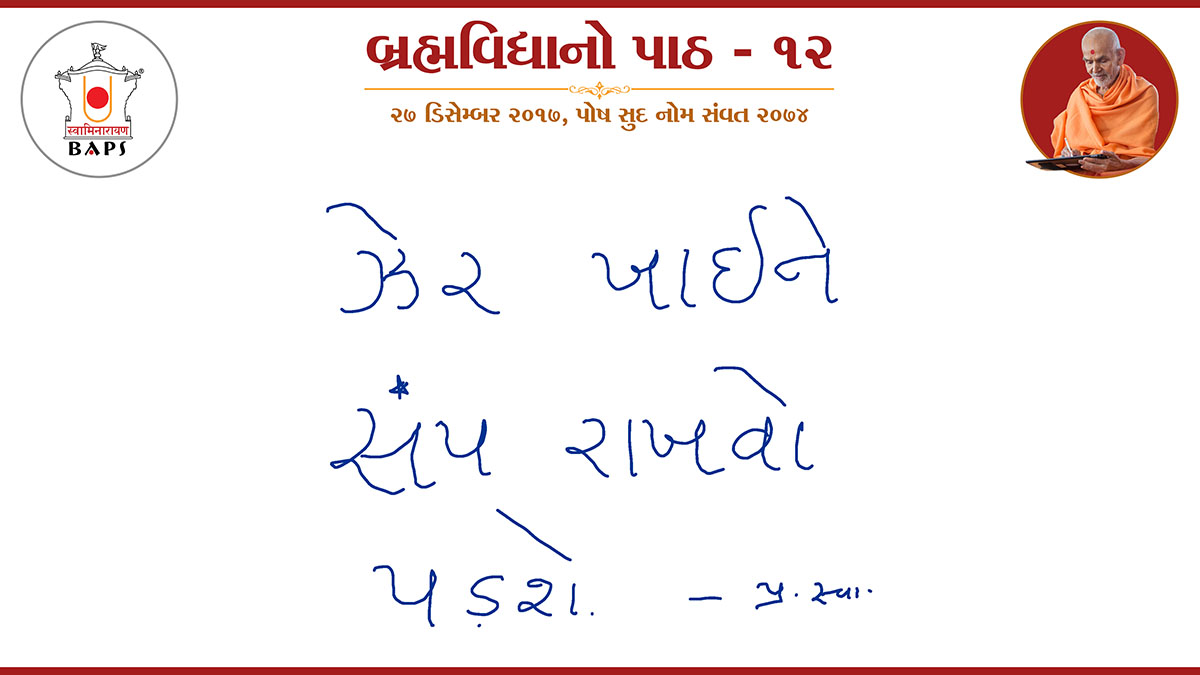 બ્રહ્મવિદ્યાનો પાઠ - ૧૨
૨૭ ડિસેમ્બર ૨૦૧૭, પોષ સુદ નોમ સંવત ૨૦૭૪
स्वामिनारायण
BAPS
ઝેર ખાઈને
સંપ રાખવો
પડશે.
- પ્ર. સ્વા.